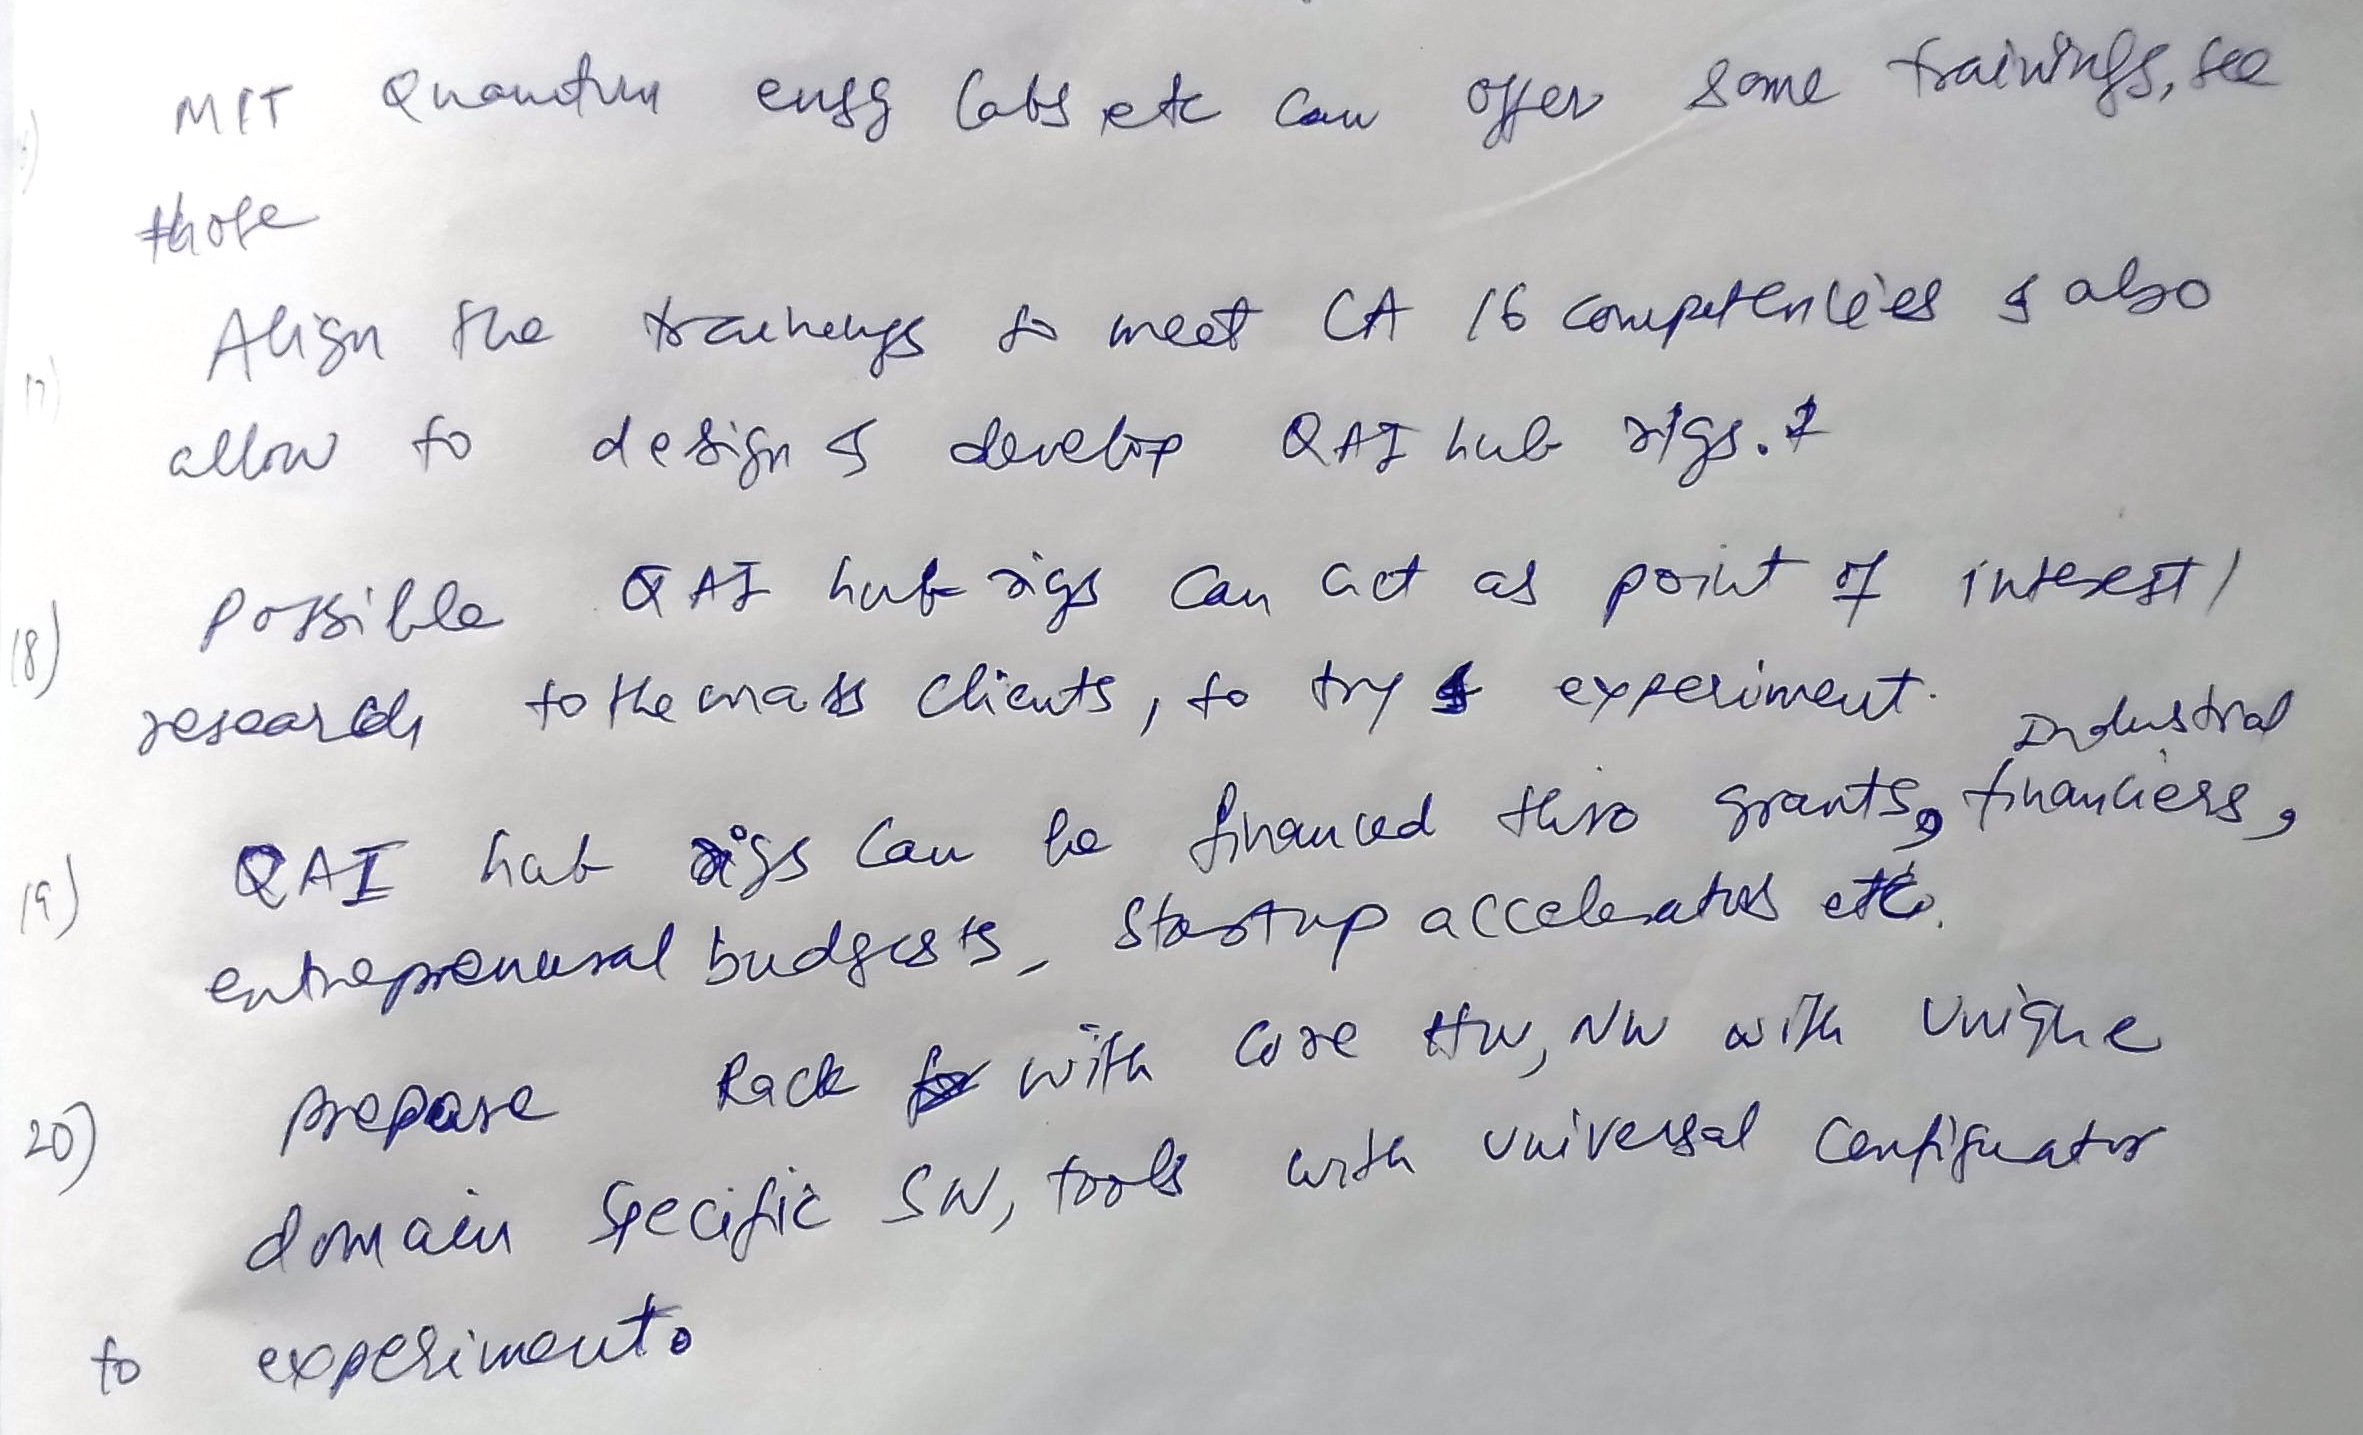 MIT Quantum engg labs etc can offer some trainings, see
those
17) Align the trainings to meet CA 16 competencies & also
allow to design & develop QAI hub rigs.
18) Possible QAI hub rigs can act as point of interest/
research to the mass clients, to try & experiment.
Industrial
19) QAI hub rigs can be financed thro grants, financiers,
entreprenural budgets, startup accelerators etc.
20) prepare Rack with core HW, NW with unique
domain specific SW, tools with universal configurator
to experiment.